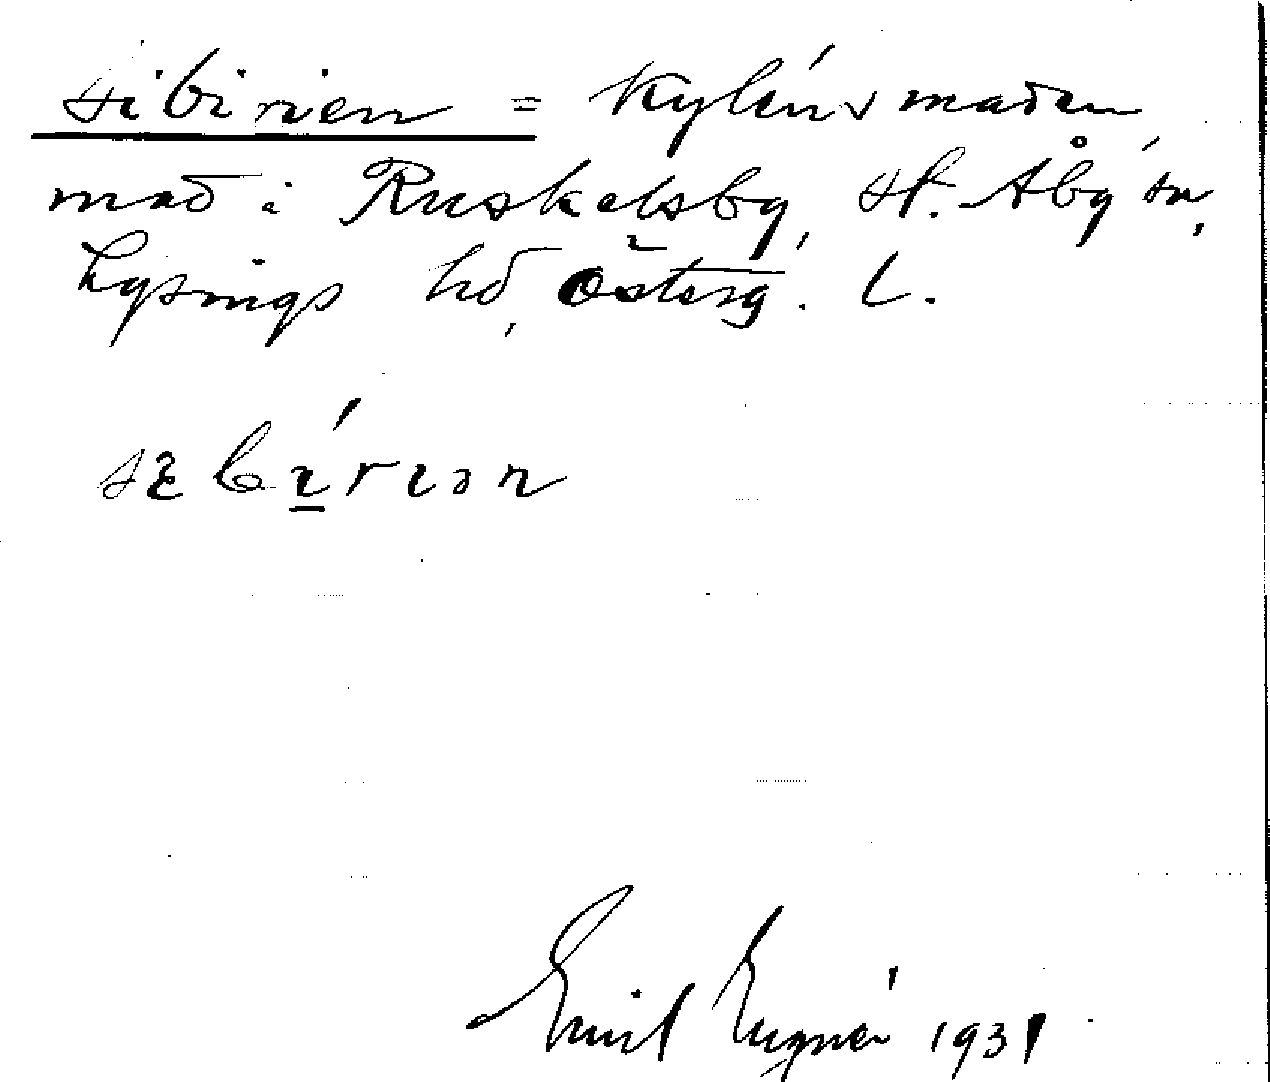 sibirien = Kylénsmaden,
mad i Ruskelsby, St. Åby sn,
Lysings hd, Österg. l.
Emil 1931